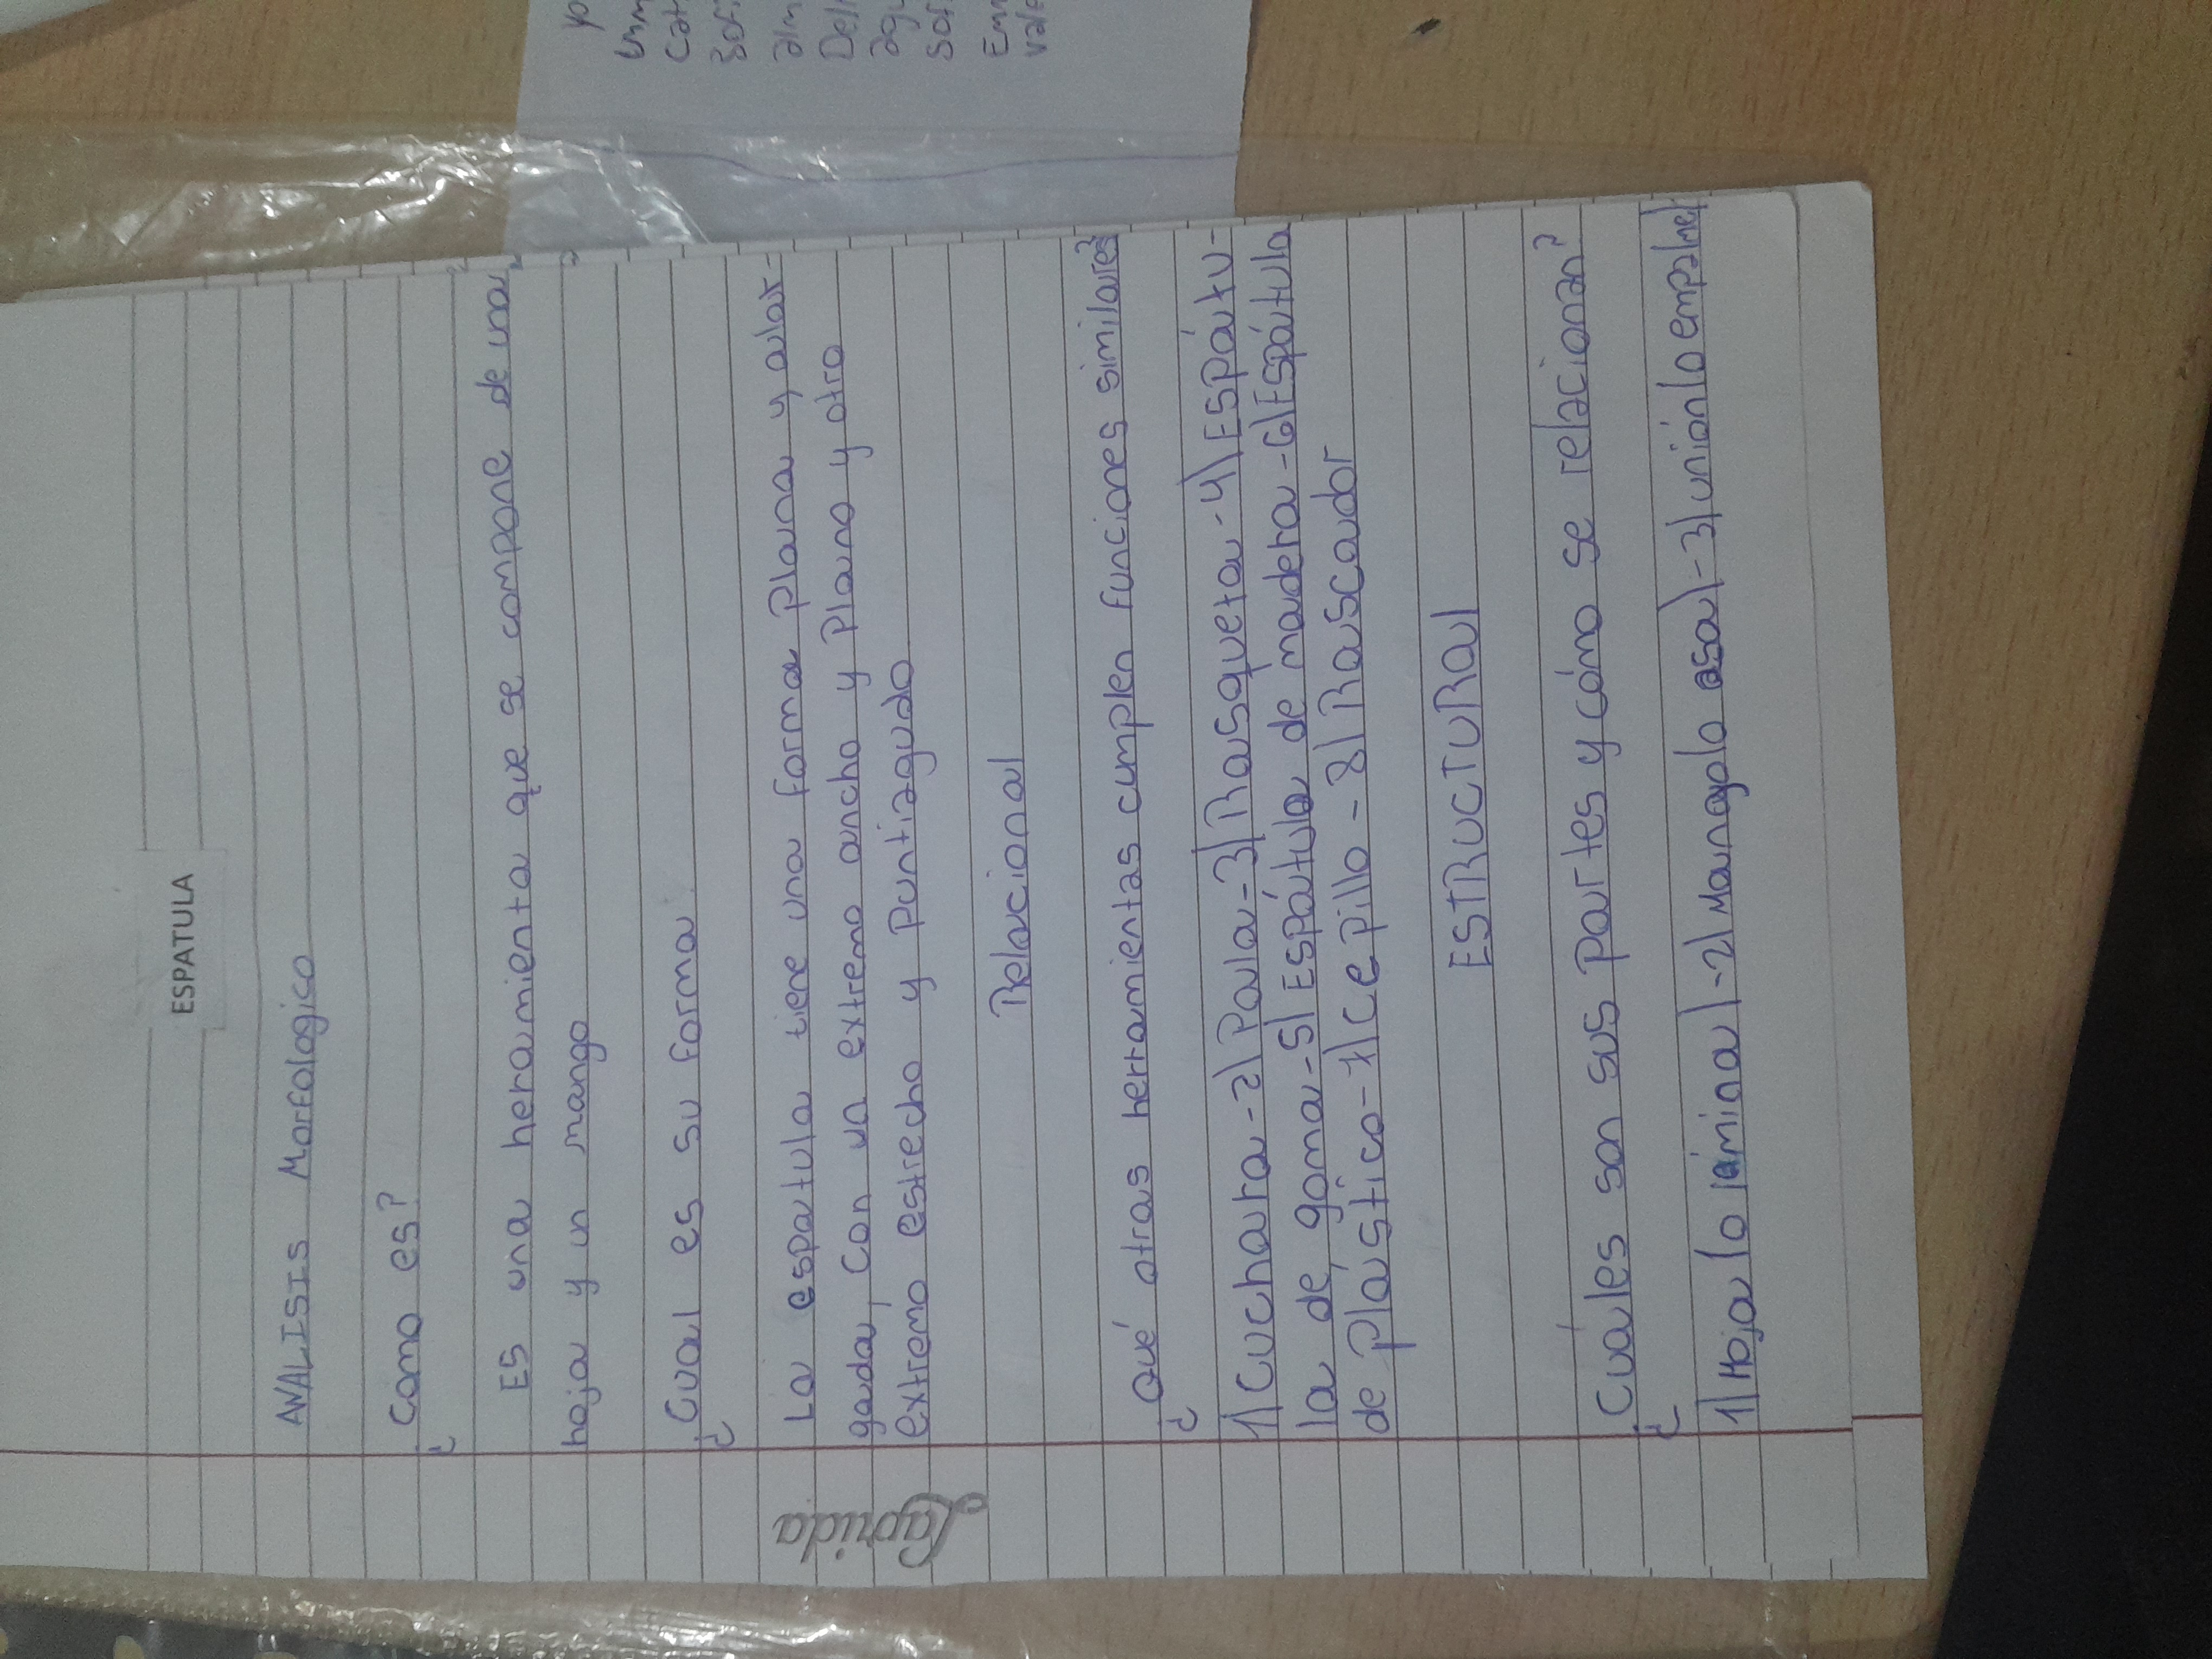 ESPATULA
ANALISIS Morfologico
¿Como es?
ES una heramienta que se compone de una
hoja y un mango
¿Cual es su forma
La espatula tiene una forma plana y alar-
gada, con un extremo ancho y Plano y otro
extremo estrecho y puntiagudo
Relacional
¿Qué otras herramientas cumplen funciones similares?
1) Cuchara - 2) Pala - 3) Rasqueta - 4) ESPátu-
la de goma - 5) ESPátula de madera - 6) ESPátula
de plástico - 7) Ce pillo - 8) Rascador
ESTRUCTURAl
¿Cuáles son sus partes y cómo se relacionan?
1) Hoja (o lámina) - 2) Mango (o asa) - 3) unión (o empalme)
Laprida